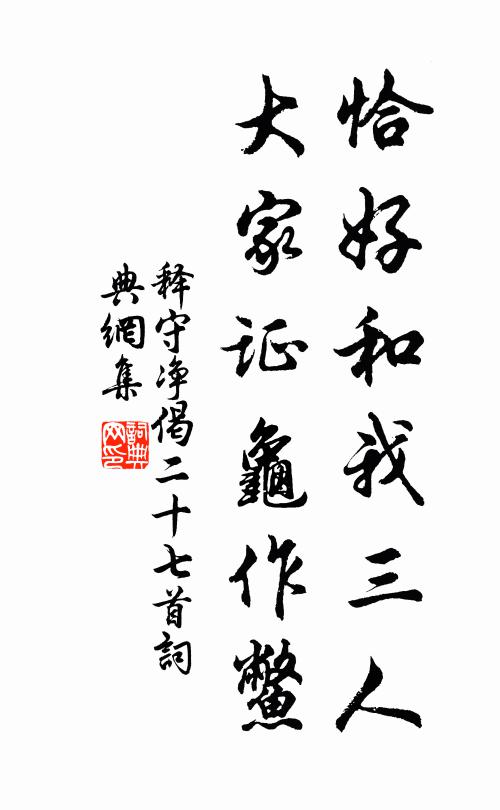 恰好和我三人
大家证龜作鱉
释守净偈二十七首詞
典網集
詞典网印